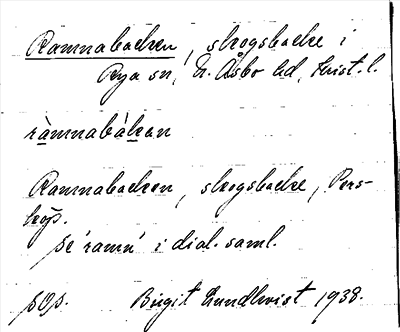 Ramnabacken, skogsbacke i
Rya sn, N. Åsbo hd, Krist. l.
ràmnabákan
Ramnabacken, skogsbacke, Pers-
köp.
se 'ramn' i dial. saml.
sOp. Birgit Lundkvist 1938.